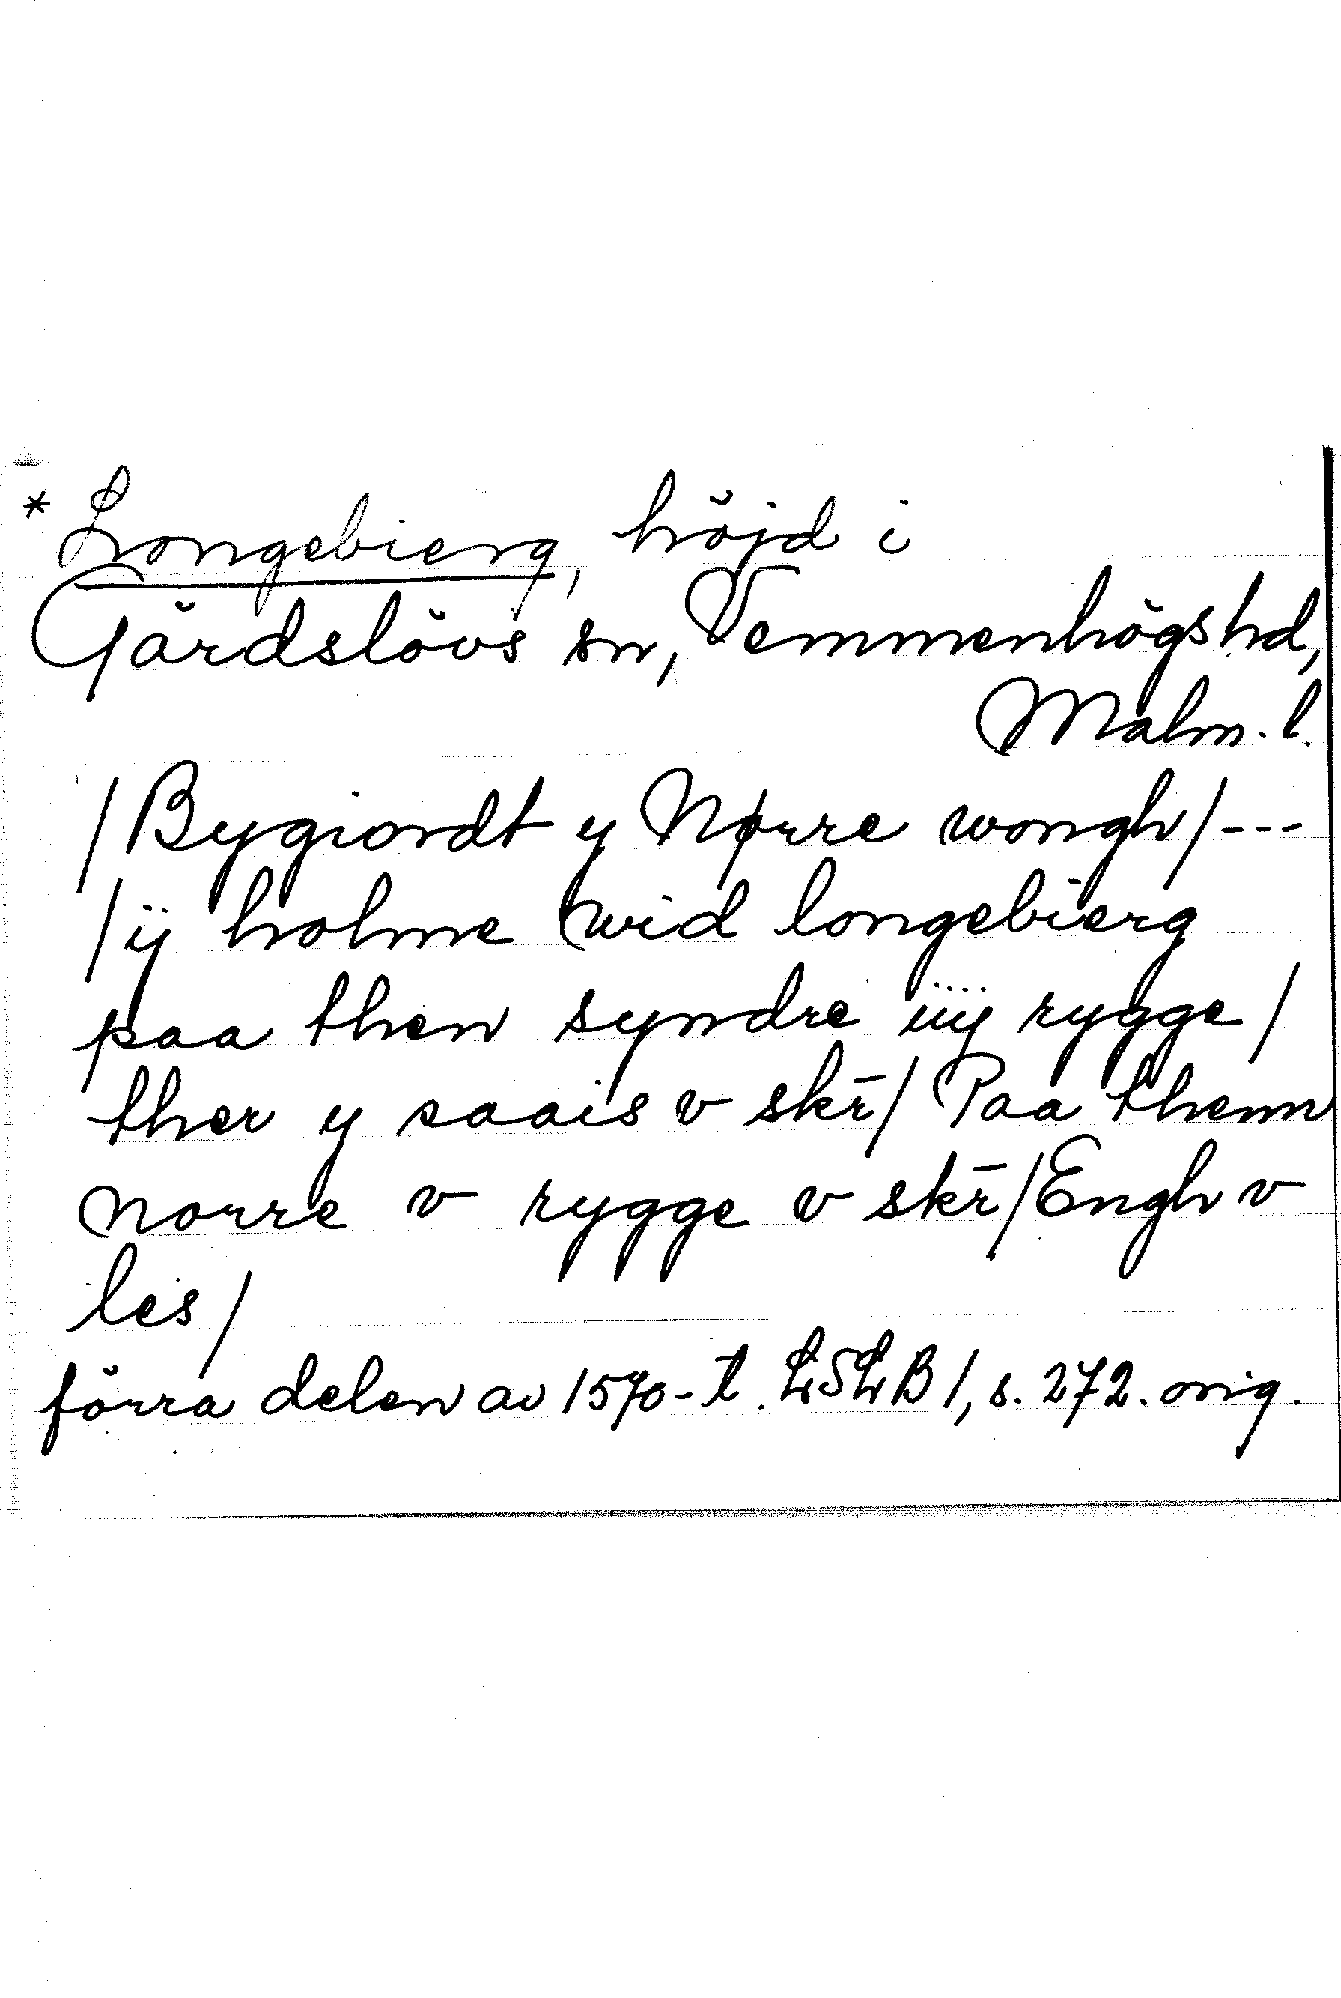 * Longebierg, höjd i
Gärdslövs sn, Vemmenhögs hd,
Malm. l.
/Bygiordt y Nørre wongh/---
/ij holme wid longebierg
paa then syndre iiij rygge/
ther y saais v skr̄/ Paa thenn
norre v rygge v skr̄/Engh v
les/
förra delen av 1570-t. LSLB 1, s. 272. orig.